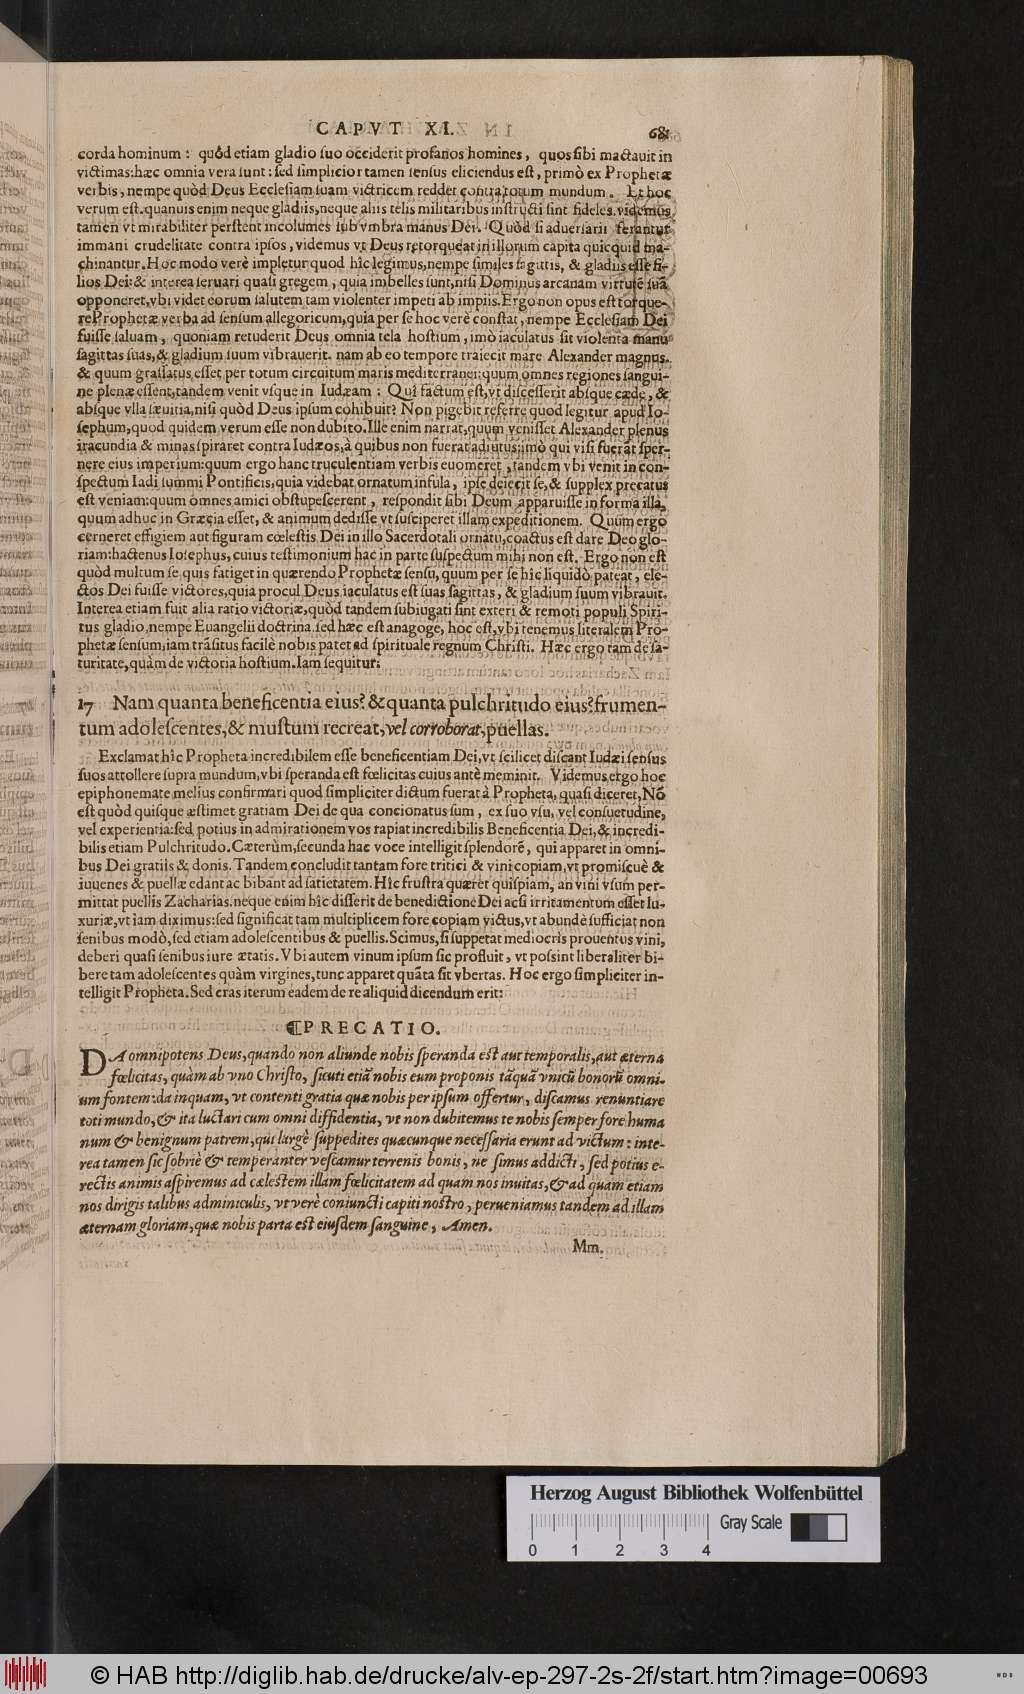 CAPVT XI. 681
corda hominum: quòd etiam gladio suo occiderit profanos homines, quos sibi mactauit in
victimas: hæc omnia vera sunt: sed simplicior tamen sensus eliciendus est, primò ex Prophetæ
verbis, nempe quòd Deus Ecclesiam suam victricem reddet contra totum mundum. Et hoc
verum est. quanuis enim neque gladiis, neque aliis telis militaribus instructi sint fideles. videmus
tamen vt mirabiliter perstent incolumes sub vmbra manus Dei. Quòd si aduersarii ferantur
immani crudelitate contra ipsos, videmus vt Deus retorqueat in illorum capita quicquid ma-
chinantur. Hoc modo verè impletur quod hîc legimus, nempe similes sagittis, & gladiis esse fi-
lios Dei: & interea seruari quasi gregem, quia imbelles sunt, nisi Dominus arcanam virtutē suā
opponeret, vbi videt eorum salutem tam violenter impeti ab impiis. Ergo non opus est torque-
re Prophetæ verba ad sensum allegoricum, quia per se hoc verè constat, nempe Ecclesiam Dei
fuisse saluam, quoniam retuderit Deus omnia tela hostium, imò iaculatus sit violenta manu
sagittas suas, & gladium suum vibrauerit. nam ab eo tempore traiecit mare Alexander magnus.
& quum grassatus esset per totum circuitum maris mediterranei: quum omnes regiones sangui-
ne plenæ essent, tandem venit vsque in Iudæam: Quî factum est, vt discesserit absque cæde, &
absque vlla sæuitia, nisi quòd Deus ipsum cohibuit? Non pigebit referre quod legitur apud Io-
sephum, quod quidem verum esse non dubito. Ille enim narrat, quum venisset Alexander plenus
iracundia & minas spiraret contra Iudæos, à quibus non fuerat adiutus: imò qui visi fuerāt sper-
nere eius imperium: quum ergo hanc truculentiam verbis euomeret, tandem vbi venit in con-
spectum Iadi summi Pontificis, quia videbat ornatum insula, ipse deiecit se, & supplex precatus
est veniam: quum omnes amici obstupescerent, respondit sibi Deum apparuisse in forma illa,
quum adhuc in Græcia esset, & animum dedisse, vt susciperet illam expeditionem. Quum ergo
cerneret effigiem aut figuram cœlestis Dei in illo Sacerdotali ornatu, coactus est dare Deo glo-
riam: hactenus Iosephus, cuius testimonium hac in parte suspectum mihi non est. Ergo non est
quòd multum se quis fatiget in quærendo Prophetæ sensu, quum per se hîc liquidò pateat, ele-
ctos Dei fuisse victores, quia procul Deus iaculatus est suas sagittas, & gladium suum vibrauit.
Interea etiam fuit alia ratio victoriæ, quòd tandem subiugati sint exteri & remoti populi Spiri-
tus gladio, nempe Euangelii doctrina. sed hæc est anagoge, hoc est, vbi tenemus literalem Pro-
phetæ sensum, iam trāsitus facilè nobis patet ad spirituale regnum Christi. Hæc ergo tam de sa-
turitate, quàm de victoria hostium. Iam sequitur:
17 Nam quanta beneficentia eius? & quanta pulchritudo eius? frumen-
tum adolescentes, & mustum recreat, vel corroborat, puellas.
Exclamat hîc Propheta incredibilem esse beneficentiam Dei, vt scilicet discant Iudæi sensus
suos attollere supra mundum, vbi speranda est fœlicitas cuius antè meminit. Videmus ergo hoc
epiphonemate melius confirmari quod simpliciter dictum fuerat à Propheta, quasi diceret, Nō
est quòd quisque æstimet gratiam Dei de qua concionatus sum, ex suo vsu, vel consuetudine,
vel experientia: sed potius in admirationem vos rapiat incredibilis Beneficentia Dei, & incredi-
bilis etiam Pulchritudo. Cæterùm, secunda hac voce intelligit splendorē, qui apparet in omni-
bus Dei gratiis & donis. Tandem concludit tantam fore tritici & vini copiam, vt promiscuè &
iuuenes & puellæ edant ac bibant ad satietatem. Hîc frustra quæret quispiam, an vini vsum per-
mittat puellis Zacharias. neque enim hîc disserit de benedictione Dei acsi irritamentum esset lu-
xuriæ, vt iam diximus: sed significat tam multiplicem fore copiam victus, vt abundè sufficiat non
senibus modò, sed etiam adolescentibus & puellis. Scimus, si suppetat mediocris prouentus vini,
deberi quasi senibus iure ætatis. Vbi autem vinum ipsum sic profluit, vt possint liberaliter bi-
bere tam adolescentes quàm virgines, tunc apparet quāta sit vbertas. Hoc ergo simpliciter in-
telligit Propheta. Sed cras iterum eadem de re aliquid dicendum erit:
¶PRECATIO.
DA omnipotens Deus, quando non aliunde nobis speranda est aut temporalis, aut æterna
fœlicitas, quàm ab vno Christo, sicuti etiā nobis eum proponis tāquā vnicū bonorū omni-
um fontem: da inquam, vt contenti gratia quæ nobis per ipsum offertur, discamus renuntiare
toti mundo, & ita luctari cum omni diffidentia, vt non dubitemus te nobis semper fore huma
num & benignum patrem, qui largè suppedites quæcunque necessaria erunt ad victum: inte-
rea tamen sic sobriè & temperanter vescamur terrenis bonis, ne simus addicti, sed potius e-
rectis animis aspiremus ad cælestem illam fœlicitatem ad quam nos inuitas, & ad quam etiam
nos dirigis talibus adminiculis, vt verè coniuncti capiti nostro, perueniamus tandem ad illam
æternam gloriam, quæ nobis parta est eiusdem sanguine, Amen.
Mm.
Herzog August Bibliothek Wolfenbüttel
Gray Scale
0 1 2 3 4
© HAB http://diglib.hab.de/drucke/alv-ep-297-2s-2f/start.htm?image=00693